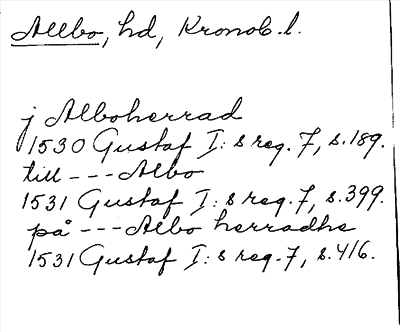 Allbo, hd, Kronob. l.
j Alboherrad
1530 Gustaf I:s reg. 7, s. 189.
till --- Albo
1531 Gustaf I:s reg. 7, s. 399.
på --- Albo herradhe
1531 Gustaf I:s reg. 7, s. 416.